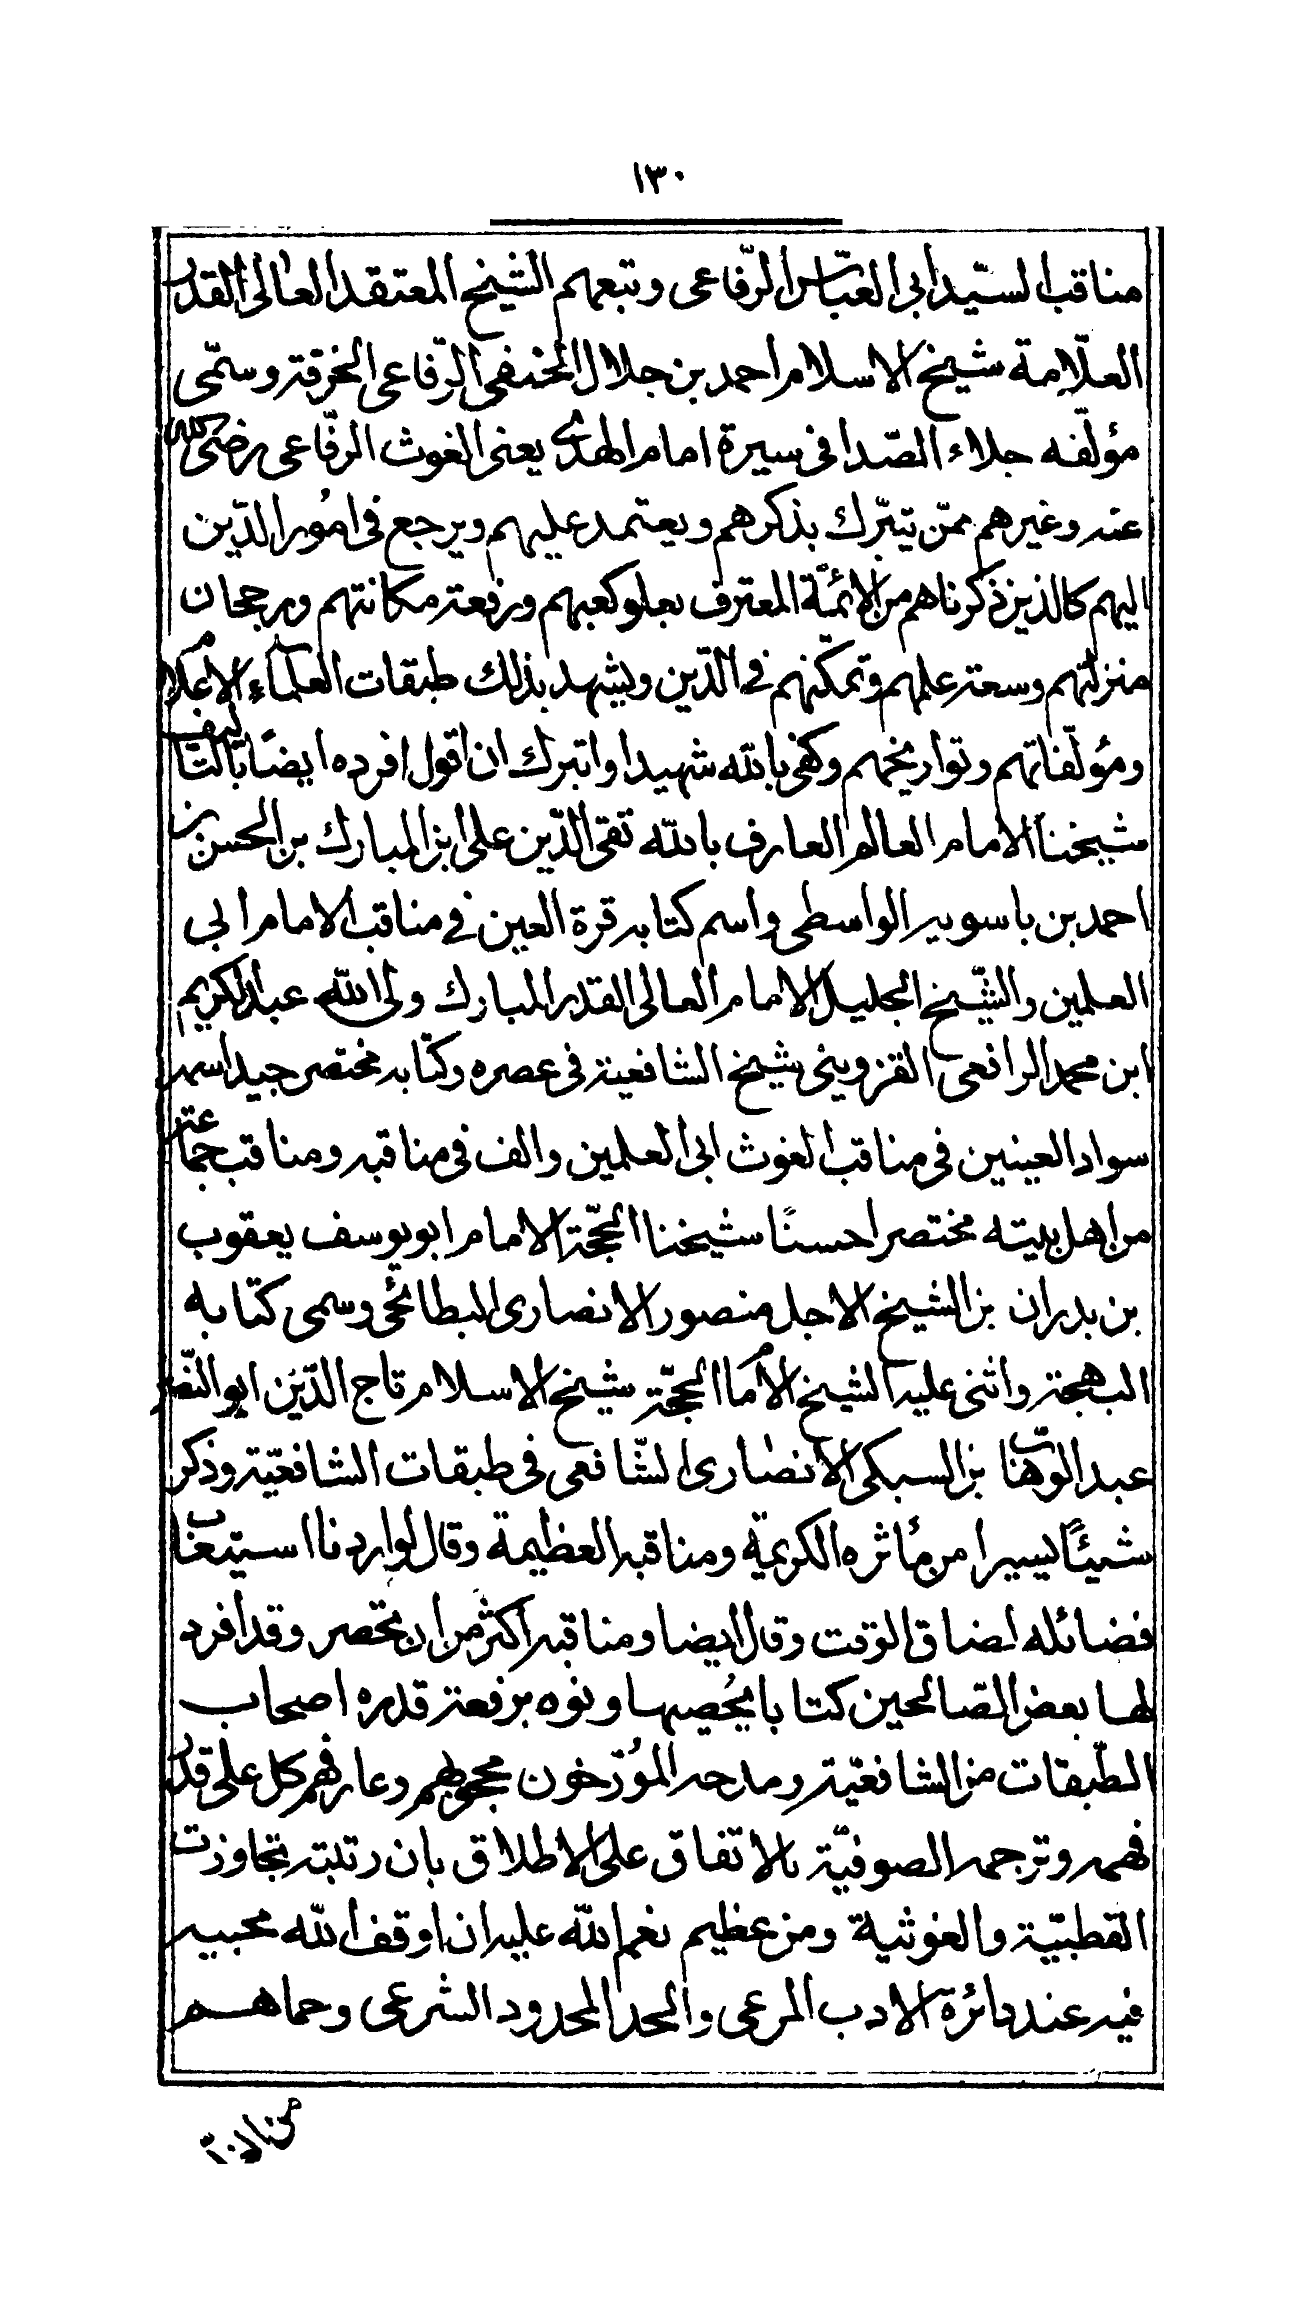 ١٣٠
مناقب السيّد ابى العبّاس الرّفاعى وتبعهم الشيخ المعتقد العالى القدر
العلّامة شيخ الاسلام احمد بن جلال الحنفى الرّفاعى الخرقة وسمّى
مؤلّفه جلاء الصّدا فى سيرة امام الهدى يعنى الغوث الرّفاعى رضى الله
عنه وغيرهم ممّن يتبرّك بذكرهم ويعتمد عليهم ويرجع فى امُور الدّين
اليهم كالذين ذكرناهم من الائمّة المعترف بعلو كعبهم ورفعة مكانتهم ورجحان
منزلتهم وسعة علمهم وتمكّنهم فى الدّين ويشهد بذلك طبقات العلماء الاعلام
ومؤلّفاتهم وتواريخهم وكفى بالله شهيدا واتبرك ان اقول افرده ايضًا بالتاليف
شيخنا الامام العالم العارف بالله تقى الدّين على ابن المبارك بن الحسن بن
احمد بن باسويه الواسطى واسم كتابه قرة العين فى مناقب الامام ابى
العلمين والشّيخ الجليل الامام العالى القدر المبارك ولى الله عبد الكريم
ابن محمد الرافعى القزوينى شيخ الشافعية فى عصره وكتابه مختصر جيد اسمه
سواد العينين فى مناقب الغوث ابى العلمين والف فى مناقبه ومناقب جماعة
من اهل بيته مختصرا حسنًا شيخنا الحجّة الامام ابو يوسف يعقوب
بن بدران بن الشيخ الاجل منصور الانصارى البطائحى وسمى كتابه
البهجة واثنى عليه الشيخ الامام الحجّة شيخ الاسلام تاج الدّين ابو النّصر
عبد الوهّاب بن السبكى الانصارى الشّافعى فى طبقات الشافعيّة وذكر
شيئًا يسيرا من مأثره الكريمة ومناقبه العظيمة وقال لو اردنا استيعاب
فضائله لضاق الوقت وقال ايضا ومناقبه اكثر من ان تحصر وقد افرد
لها بعض الصّالحين كتابا يُحصيها ونوه برفعة قدره اصحاب
الطّبقات من الشافعيّة ومدحه المُورّخون محجوبهم وعارفهم كل على قدر
فهمه وترجمه الصوفيّة بالاتفاق على الاطلاق بان رتبته تجاوزت
القطبيّة والغوثية ومن عظيم نعم الله عليه ان اوقف الله محبيه
فيه عند دائرة الادب المرعى والحد المحدود الشرعى وحماهم